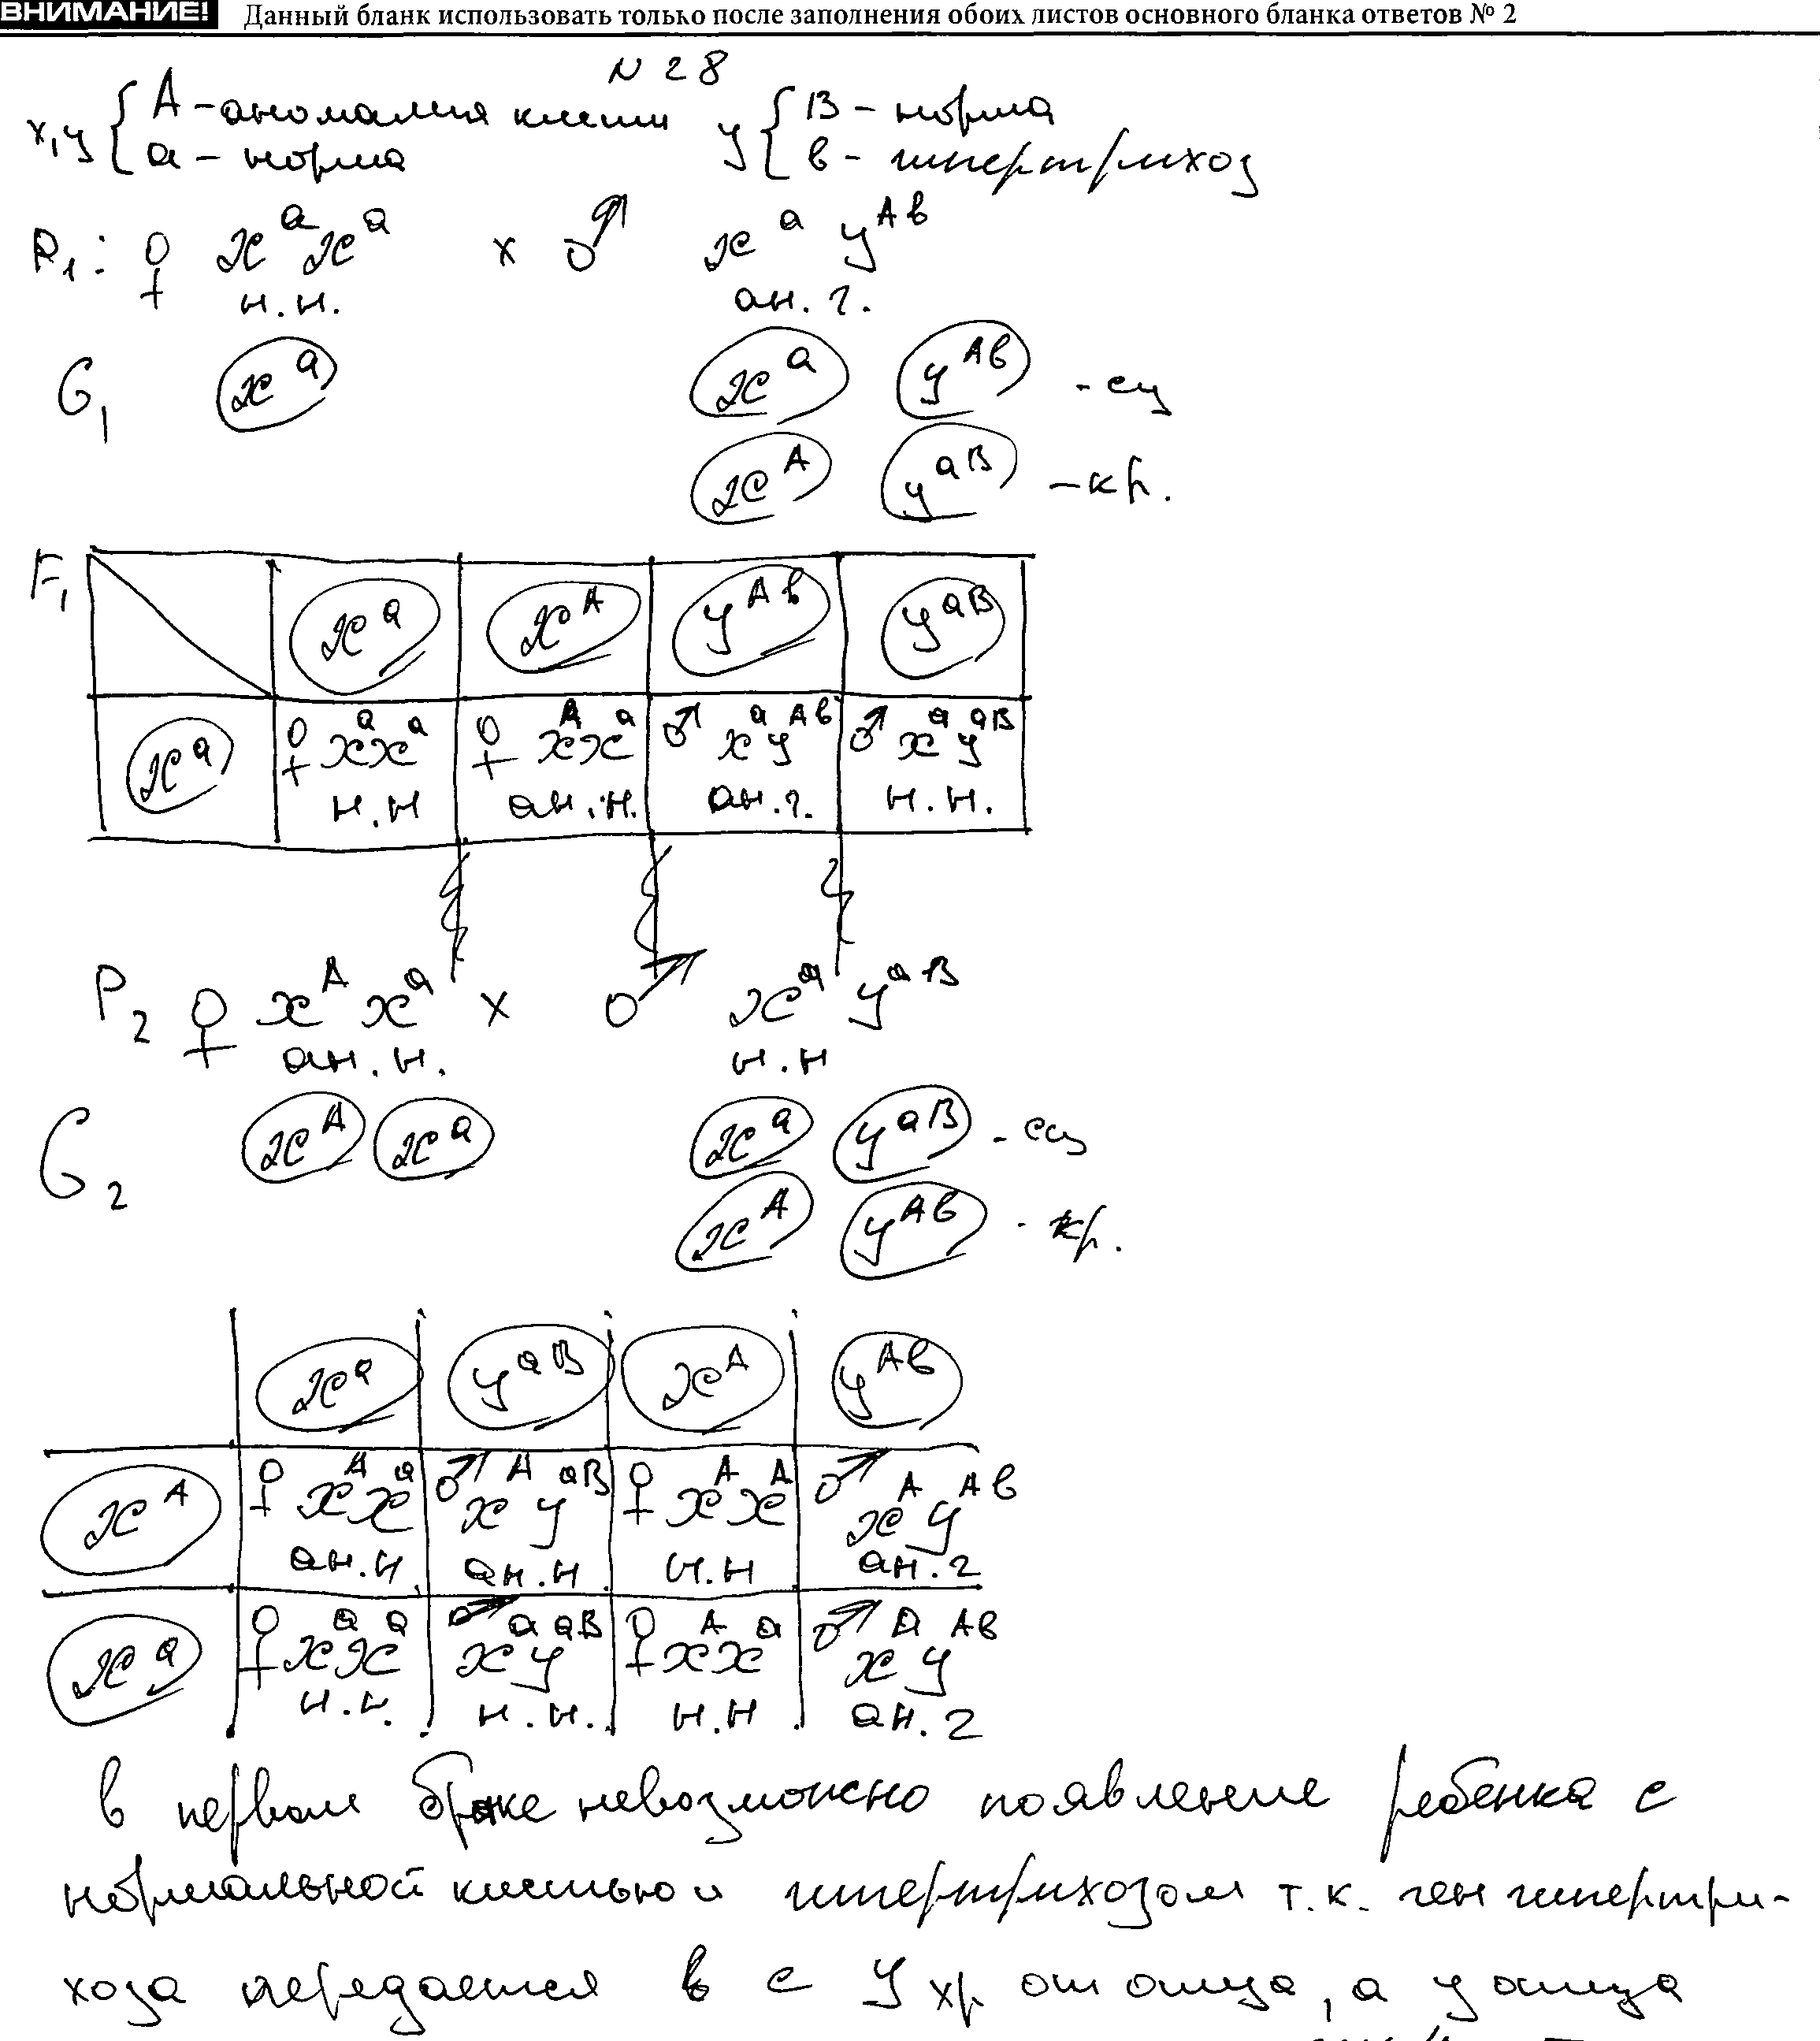 ВНИМАНИЕ! Данный бланк использовать только после заполнения обоих листов основного бланка ответов № 2
N 28
x,y { A - аномалия кисти y { B - норма
a - норма в - гипертрихоз
P1: ♀ X^a X^a x ♂ X^a y^Aв
н.н. ан. г.
G1 X^a X^a y^Aв - сц
X^A y^aB - кр.
F1 X^a X^A y^Aв y^aB
X^a ♀ X^a X^a ♀ X^A X^a ♂ X^a y^Aв ♂ X^a y^aB
н.н ан.н. ан.г. н.н.
P2 ♀ X^A X^a x ♂ X^a y^aB
ан.н. н.н
G2 X^A X^a X^a y^aB - сц
X^A y^Aв - кр.
X^a y^aB X^A y^Aв
X^A ♀ X^A X^a ♂ X^A y^aB ♀ X^A X^A ♂ X^A y^Aв
ан.н ан.н н.н ан.г
X^a ♀ X^a X^a ♂ X^a y^aB ♀ X^A X^a ♂ X^a y^Aв
н.н. н.н. н.н ан.г
в первом браке невозможно появление ребенка с
нормальной кистью и гипертрихозом т.к. ген гипертри-
хоза передается в с У хр от отца, а у отца